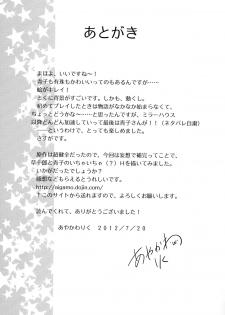 あとがき
まほよ、いいですね～！
青子も有珠もかわいいってのもあるんですが……
絵がキレイ！
とくに背景がすごいです。しかも、動くし。
初めてプレイしたときは物語がなかなか始まらなくて、
ちょっとどうかな～と思ったんですが、ミラーハウス
以降どんどん加速していって最後は青子さんが！！（ネタバレ自粛）
――というわけで、とっても楽しかったです。
さすがです。
原作は超健全だったので、今回は妄想で補完ってことで、
草十郎と青子のいちゃいちゃ（？）Hを描いてみました。
いかがだったでしょうか？
感想などもらえるとうれしいです。
http://aigamo.dojin.com/
↑このサイトから送れますので、よろしくお願いします。
読んでくれて、ありがとうございました！
あやかわりく　２０１２／７／２０
あやかわりく